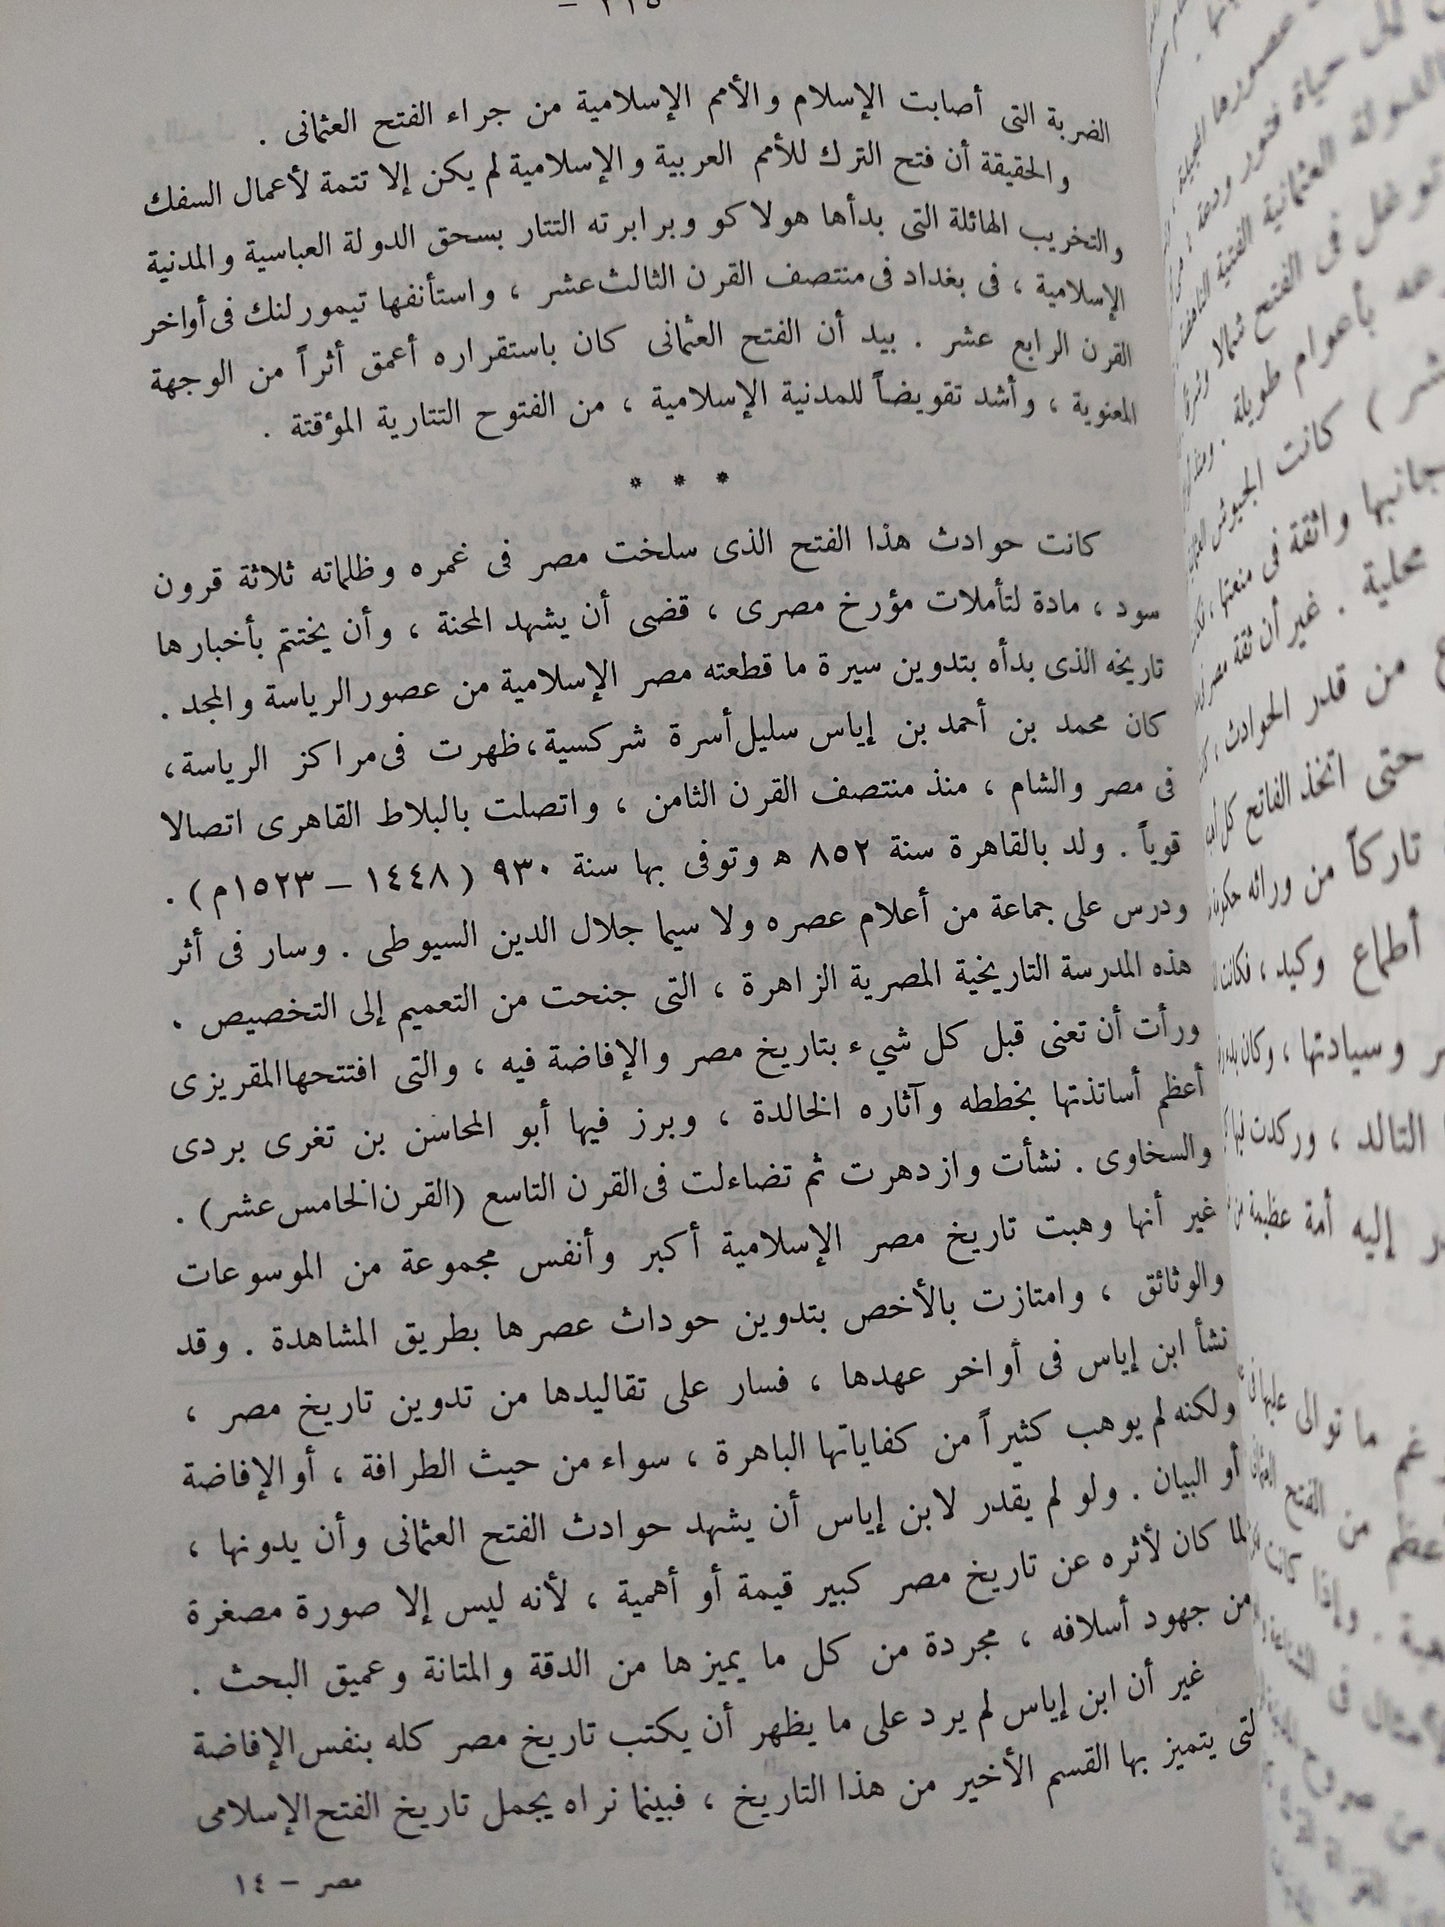 الضربة التى أصابت الإسلام والأمم الإسلامية من جراء الفتح العثمانى .
والحقيقة أن فتح الترك للأمم العربية والإسلامية لم يكن إلا تتمة لأعمال السفك
والتخريب الهائلة التى بدأها هولاكو وبرابرته التتار بسحق الدولة العباسية والمدنية
الإسلامية ، فى بغداد فى منتصف القرن الثالث عشر ، واستأنفها تيمورلنك فى أواخر
القرن الرابع عشر . بيد أن الفتح العثمانى كان باستقراره أعمق أثراً من الوجهة
المعنوية ، وأشد تقويضاً للمدنية الإسلامية ، من الفتوح التتارية المؤقتة .
* * *
كانت حوادث هذا الفتح الذى سلخت مصر فى غمره وظلماته ثلاثة قرون
سود ، مادة لتأملات مؤرخ مصرى ، قضى أن يشهد المحنة ، وأن يختتم بأخبارها
تاريخه الذى بدأه بتدوين سيرة ما قطعته مصر الإسلامية من عصور الرياسة والمجد .
كان محمد بن أحمد بن إياس سليل أسرة شركسية، ظهرت فى مراكز الرياسة،
فى مصر والشام ، منذ منتصف القرن الثامن ، واتصلت بالبلاط القاهرى اتصالا
قوياً . ولد بالقاهرة سنة ٨٥٢ ه وتوفى بها سنة ٩٣٠ (١٤٤٨ – ١٥٢٣م) .
ودرس على جماعة من أعلام عصره ولا سيما جلال الدين السيوطى . وسار فى أثر
هذه المدرسة التاريخية المصرية الزاهرة ، التى جنحت من التعميم إلى التخصيص .
ورأت أن تعنى قبل كل شيء بتاريخ مصر والإفاضة فيه ، والتى افتتحها المقريزى
أعظم أساتذتها بخططه وآثاره الخالدة ، وبرز فيها أبو المحاسن بن تغرى بردى
والسخاوى . نشأت وازدهرت ثم تضاءلت فى القرن التاسع (القرن الخامس عشر) .
غير أنها وهبت تاريخ مصر الإسلامية أكبر وأنفس مجموعة من الموسوعات
والوثائق ، وامتازت بالأخص بتدوين حوداث عصرها بطريق المشاهدة . وقد
نشأ ابن إياس فى أواخر عهدها ، فسار على تقاليدها من تدوين تاريخ مصر ،
ولكنه لم يوهب كثيراً من كفاياتها الباهرة ، سواء من حيث الطرافة ، أو الإفاضة
أو البيان . ولو لم يقدر لابن إياس أن يشهد حوادث الفتح العثمانى وأن يدونها ،
لما كان لأثره عن تاريخ مصر كبير قيمة أو أهمية ، لأنه ليس إلا صورة مصغرة
من جهود أسلافه ، مجردة من كل ما يميزها من الدقة والمتانة وعميق البحث .
غير أن ابن إياس لم يرد على ما يظهر أن يكتب تاريخ مصر كله بنفس الإفاضة
لتى يتميز بها القسم الأخير من هذا التاريخ ، فبينما نراه يجمل تاريخ الفتح الإسلامى
مصر – ١٤
حياة فتور ودعة
الدولة العثمانية الفتية
توغل فى الفتح شمالا
بأعوام طويلة .
كانت الجيوش
جانبها واثقة فى منعتها
محلية . غير أن ثقة مصر
من قدر الحوادث
حتى اتخذ الفاتح كل
تاركاً من ورائه
أطماع وكيد ، فكانت
وسيادتها ، وكان
التالد ، وركدت
إليه أمة عظيمة
ما توالى عليها
من الفتح